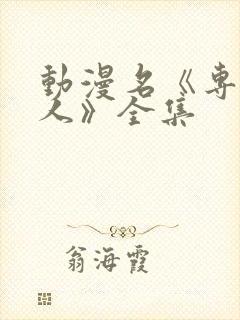 動漫名《專
人》全集
翁海霞